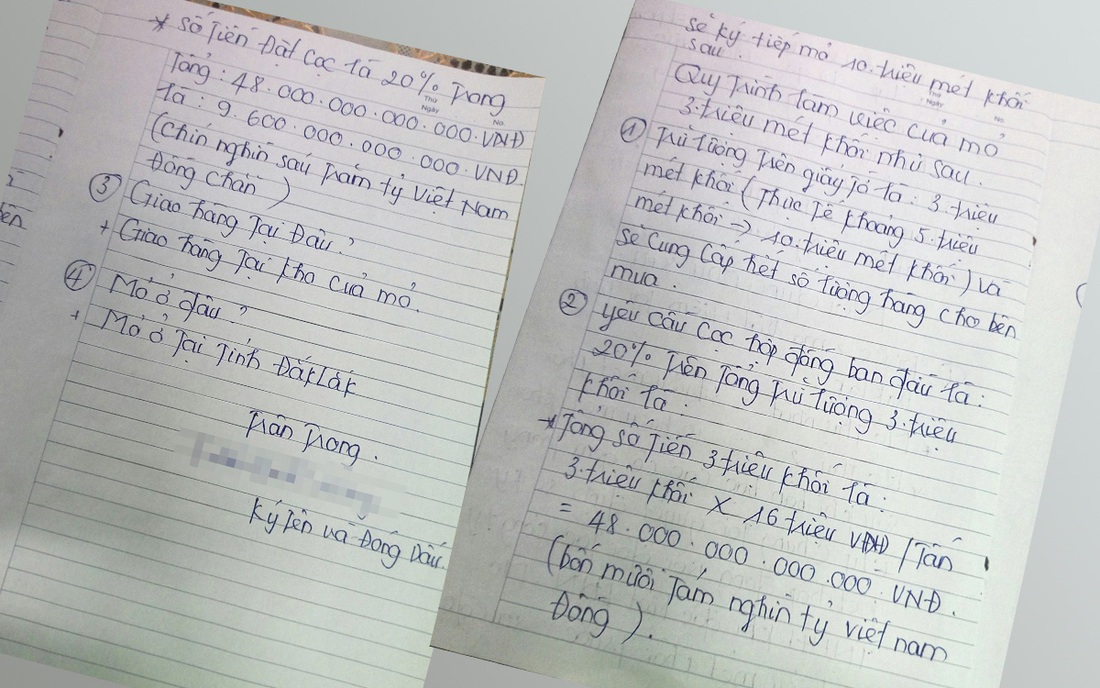 * Số Tiền Đặt Cọc là 20% Trong
Tổng: 48.000.000.000.000.000 VNĐ
là: 9.600.000.000.000.000 VNĐ.
(Chín nghìn sáu Trăm tỷ Việt Nam
Đồng chẵn)
③ Giao hàng Tại Đâu?
+ Giao hàng Tại kho của mỏ.
④ Mỏ ở đâu?
+ Mỏ ở Tại Tỉnh Đắk Lắk
Trân Trọng.
Ký Tên và Đóng Dấu.
sẽ ký tiếp mỏ 10.triệu mét khối
sau.
Quy Trình làm việc của mỏ
3.triệu mét khối như sau.
① Trữ lượng Trên giấy Tờ là: 3.triệu
mét khối (Thực Tế khoảng 5.triệu
mét khối → 10.triệu mét khối) và
sẽ Cung Cấp hết số lượng hàng cho bên
mua.
② yêu cầu Cọc hợp đồng ban đầu là:
20% Trên Tổng Trữ lượng 3.triệu
khối là:
* Tổng số Tiền 3.triệu khối là:
3.triệu khối X 16 triệu VNĐ/Tấn
= 48.000.000.000.000.000 VNĐ.
(bốn mươi Tám nghìn tỷ việt nam
Đồng).